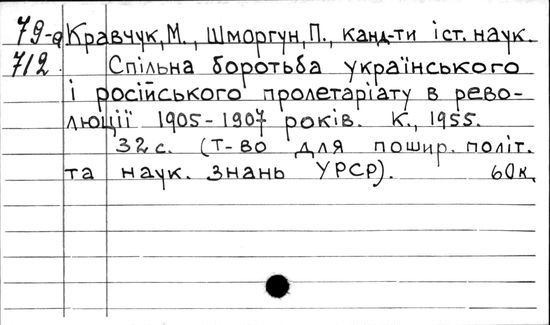 79-а Кравчук, М., Шморгун, П., канд-ти іст. наук.
712 Спільна боротьба українського
і російського пролетаріату в рево-
люції 1905-1907 років. К., 1955.
32 с. (т-во для пошир. політ.
та наук. знань УРСР). 60 к.